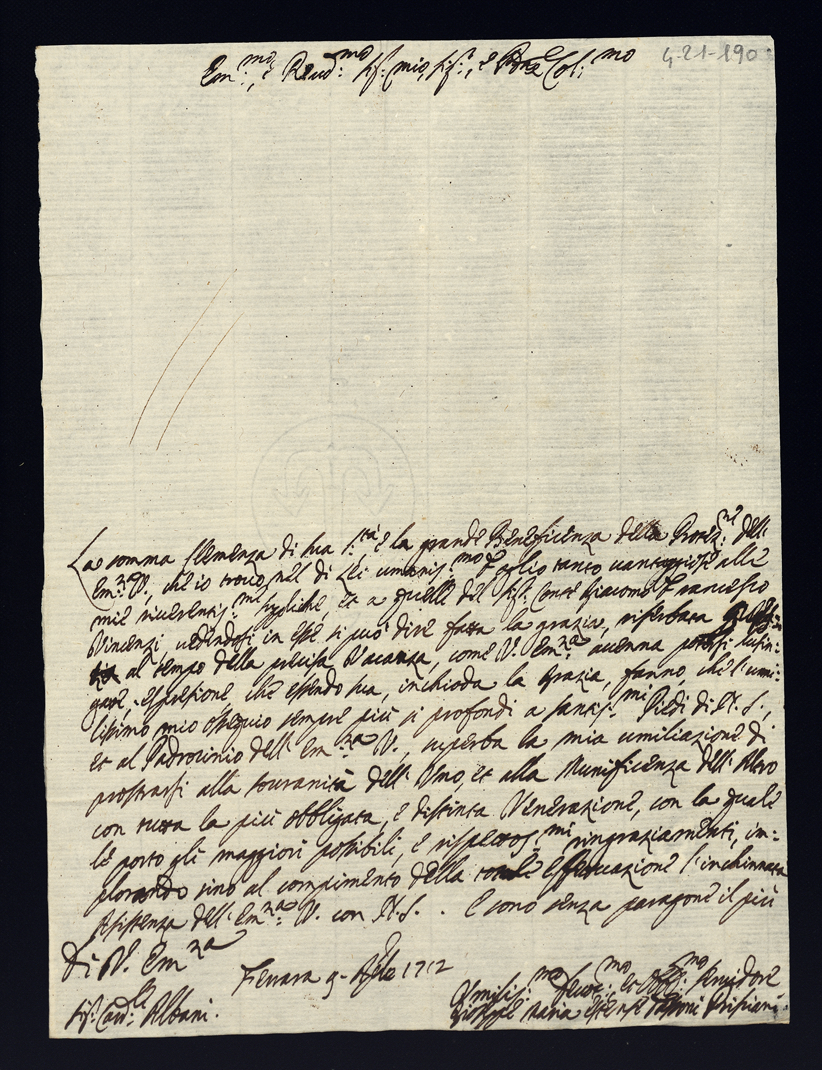 Em:mo, e Reud:mo Sig: mio, Sig:, e Pne Col:mo
4-21-190
La somma Clemenza di sua S:tà e la grande Beneficenza della Protez:ne dell'
Em:za V., che io trovo nel di Lei umanis:mo Foglio tanto uantaggiose alle
mie riuerentis:me suppliche, et a quelle del Sig: Conte Giacomo Francesco
Vincenzi, uedendosi in esse si può dire fatta la grazia, riserbata
al tempo della precisa Vacanza, come V. Em:za accenna potersi lusin:
gare, espressione che essendo sua, inchioda la Grazia, fanno, che l'umi:
lissimo mio ossequio sempre più si profondi a santis:mi Piedi di N. S.,
et al Padrocinio dell' Em:za V., superba la mia umiliazione di
prostrarsi alla souranità dell' Uno, et alla Munificenza dell' Altro
con tutta la più obbligata, e distinta Venerazione, con la quale
le porto gli maggiori possibili, e rispettos:mi ringraziamenti, im=
plorando sino al compimento della totale Effettuazione l'inchinnata
Assistenza dell' Em:za V. con N. S. . E sono senza paragone il più
Di V. Em:za
Ferrara 9 1712
Sig: Card:le Albani.
Umilis:mo Deuot:mo et Obb:mo Seruidore
Gioseppe Maria Estense Tassoni